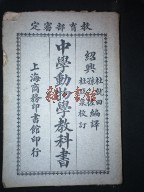 教育部審定
紹興
杜就田
編譯
校訂
中學動物學教科書
上海商務印書館印行